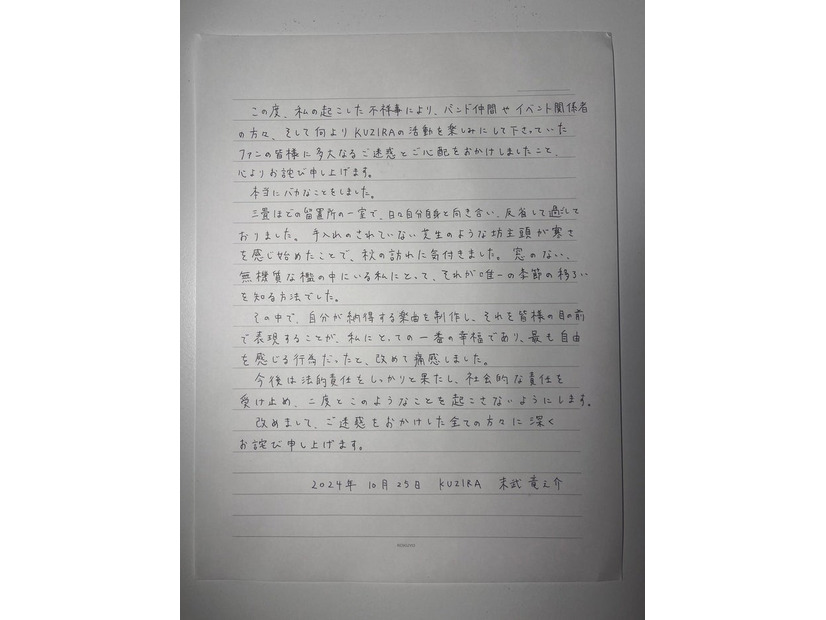 この度、私の起こした不祥事により、バンド仲間やイベント関係者
の方々、そして何よりKUZIRAの活動を楽しみにして下さっていた
ファンの皆様に多大なるご迷惑とご心配をおかけしましたこと、
心よりお詫び申し上げます。
本当にバカなことをしました。
三畳ほどの留置所の一室で、日々自分自身と向き合い、反省して過ごして
おりました。手入れのされていない芝生のような坊主頭が寒さ
を感じ始めたことで、秋の訪れに気付きました。窓のない、
無機質な檻の中にいる私にとって、それが唯一の季節の移ろい
を知る方法でした。
その中で、自分が納得する楽曲を制作し、それを皆様の目の前
で表現することが、私にとっての一番の幸福であり、最も自由
を感じる行為だったと、改めて痛感しました。
今後は法的責任をしっかりと果たし、社会的な責任を
受け止め、二度とこのようなことを起こさないようにします。
改めまして、ご迷惑をおかけした全ての方々に深く
お詫び申し上げます。
2024年 10月25日 KUZIRA 末武竜之介
KOKUYO